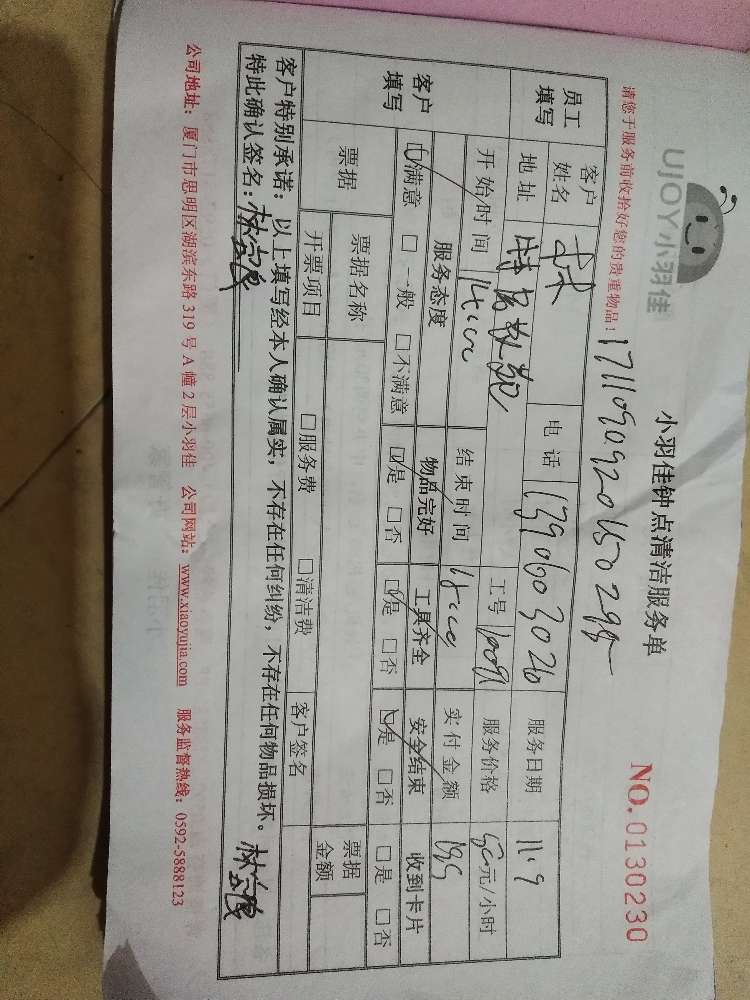 UJOY小羽佳
小羽佳钟点清洁服务单
NO.0130230
请您于服务前收拾好您的贵重物品！
员工填写 客户姓名 电话 1390603026 服务日期 11.9
地址 工号 服务价格 元/小时
客户填写 开始时间 14:00 结束时间 18:00 实付金额
服务态度 物品完好 工具齐全 安全结束 收到卡片
☑满意 □一般 □不满意 ☑是 □否 ☑是 □否 ☑是 □否 □是 □否
票据 票据名称 票据金额
开票项目 □服务费 □清洁费 客户签名
客户特别承诺：以上填写经本人确认属实，不存在任何纠纷，不存在任何物品损坏。
特此确认签名：
公司地址：厦门市思明区湖滨东路319号A幢2层小羽佳 公司网站：www.xiaoyujia.com 服务监督热线：0592-5888123